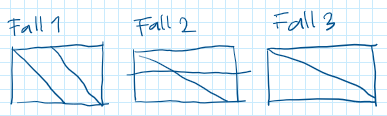 Fall 1 Fall 2 Fall 3